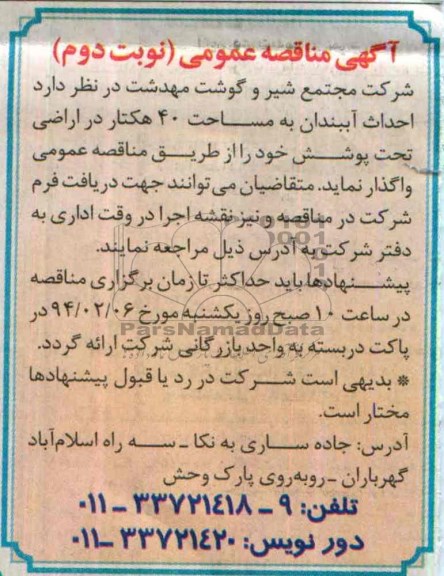 آگهی مناقصه عمومی (نوبت دوم)
شرکت مجتمع شیر و گوشت مهدشت در نظر دارد
احداث آببندان به مساحت ۴۰ هکتار در اراضی
تحت پوشش خود را از طریق مناقصه عمومی
واگذار نماید. متقاضیان می‌توانند جهت دریافت فرم
شرکت در مناقصه و نیز نقشه اجرا در وقت اداری به
دفتر شرکت به آدرس ذیل مراجعه نمایند.
پیشنهادها باید حداکثر تا زمان برگزاری مناقصه
در ساعت ۱۰ صبح روز یکشنبه مورخ ۹۴/۰۲/۰۶ در
ParsNamadData
پاکت دربسته به واحد بازرگانی شرکت ارائه گردد.
* بدیهی است شرکت در رد یا قبول پیشنهادها
مختار است.
آدرس: جاده ساری به نکا ـ سه راه اسلام‌آباد
گهرباران ـ روبه‌روی پارک وحش
تلفن: ۹ ـ ۳۳۷۲۱٤۱۸ ـ ۰۱۱
دور نویس: ۳۳۷۲۱٤۲۰ ـ۰۱۱